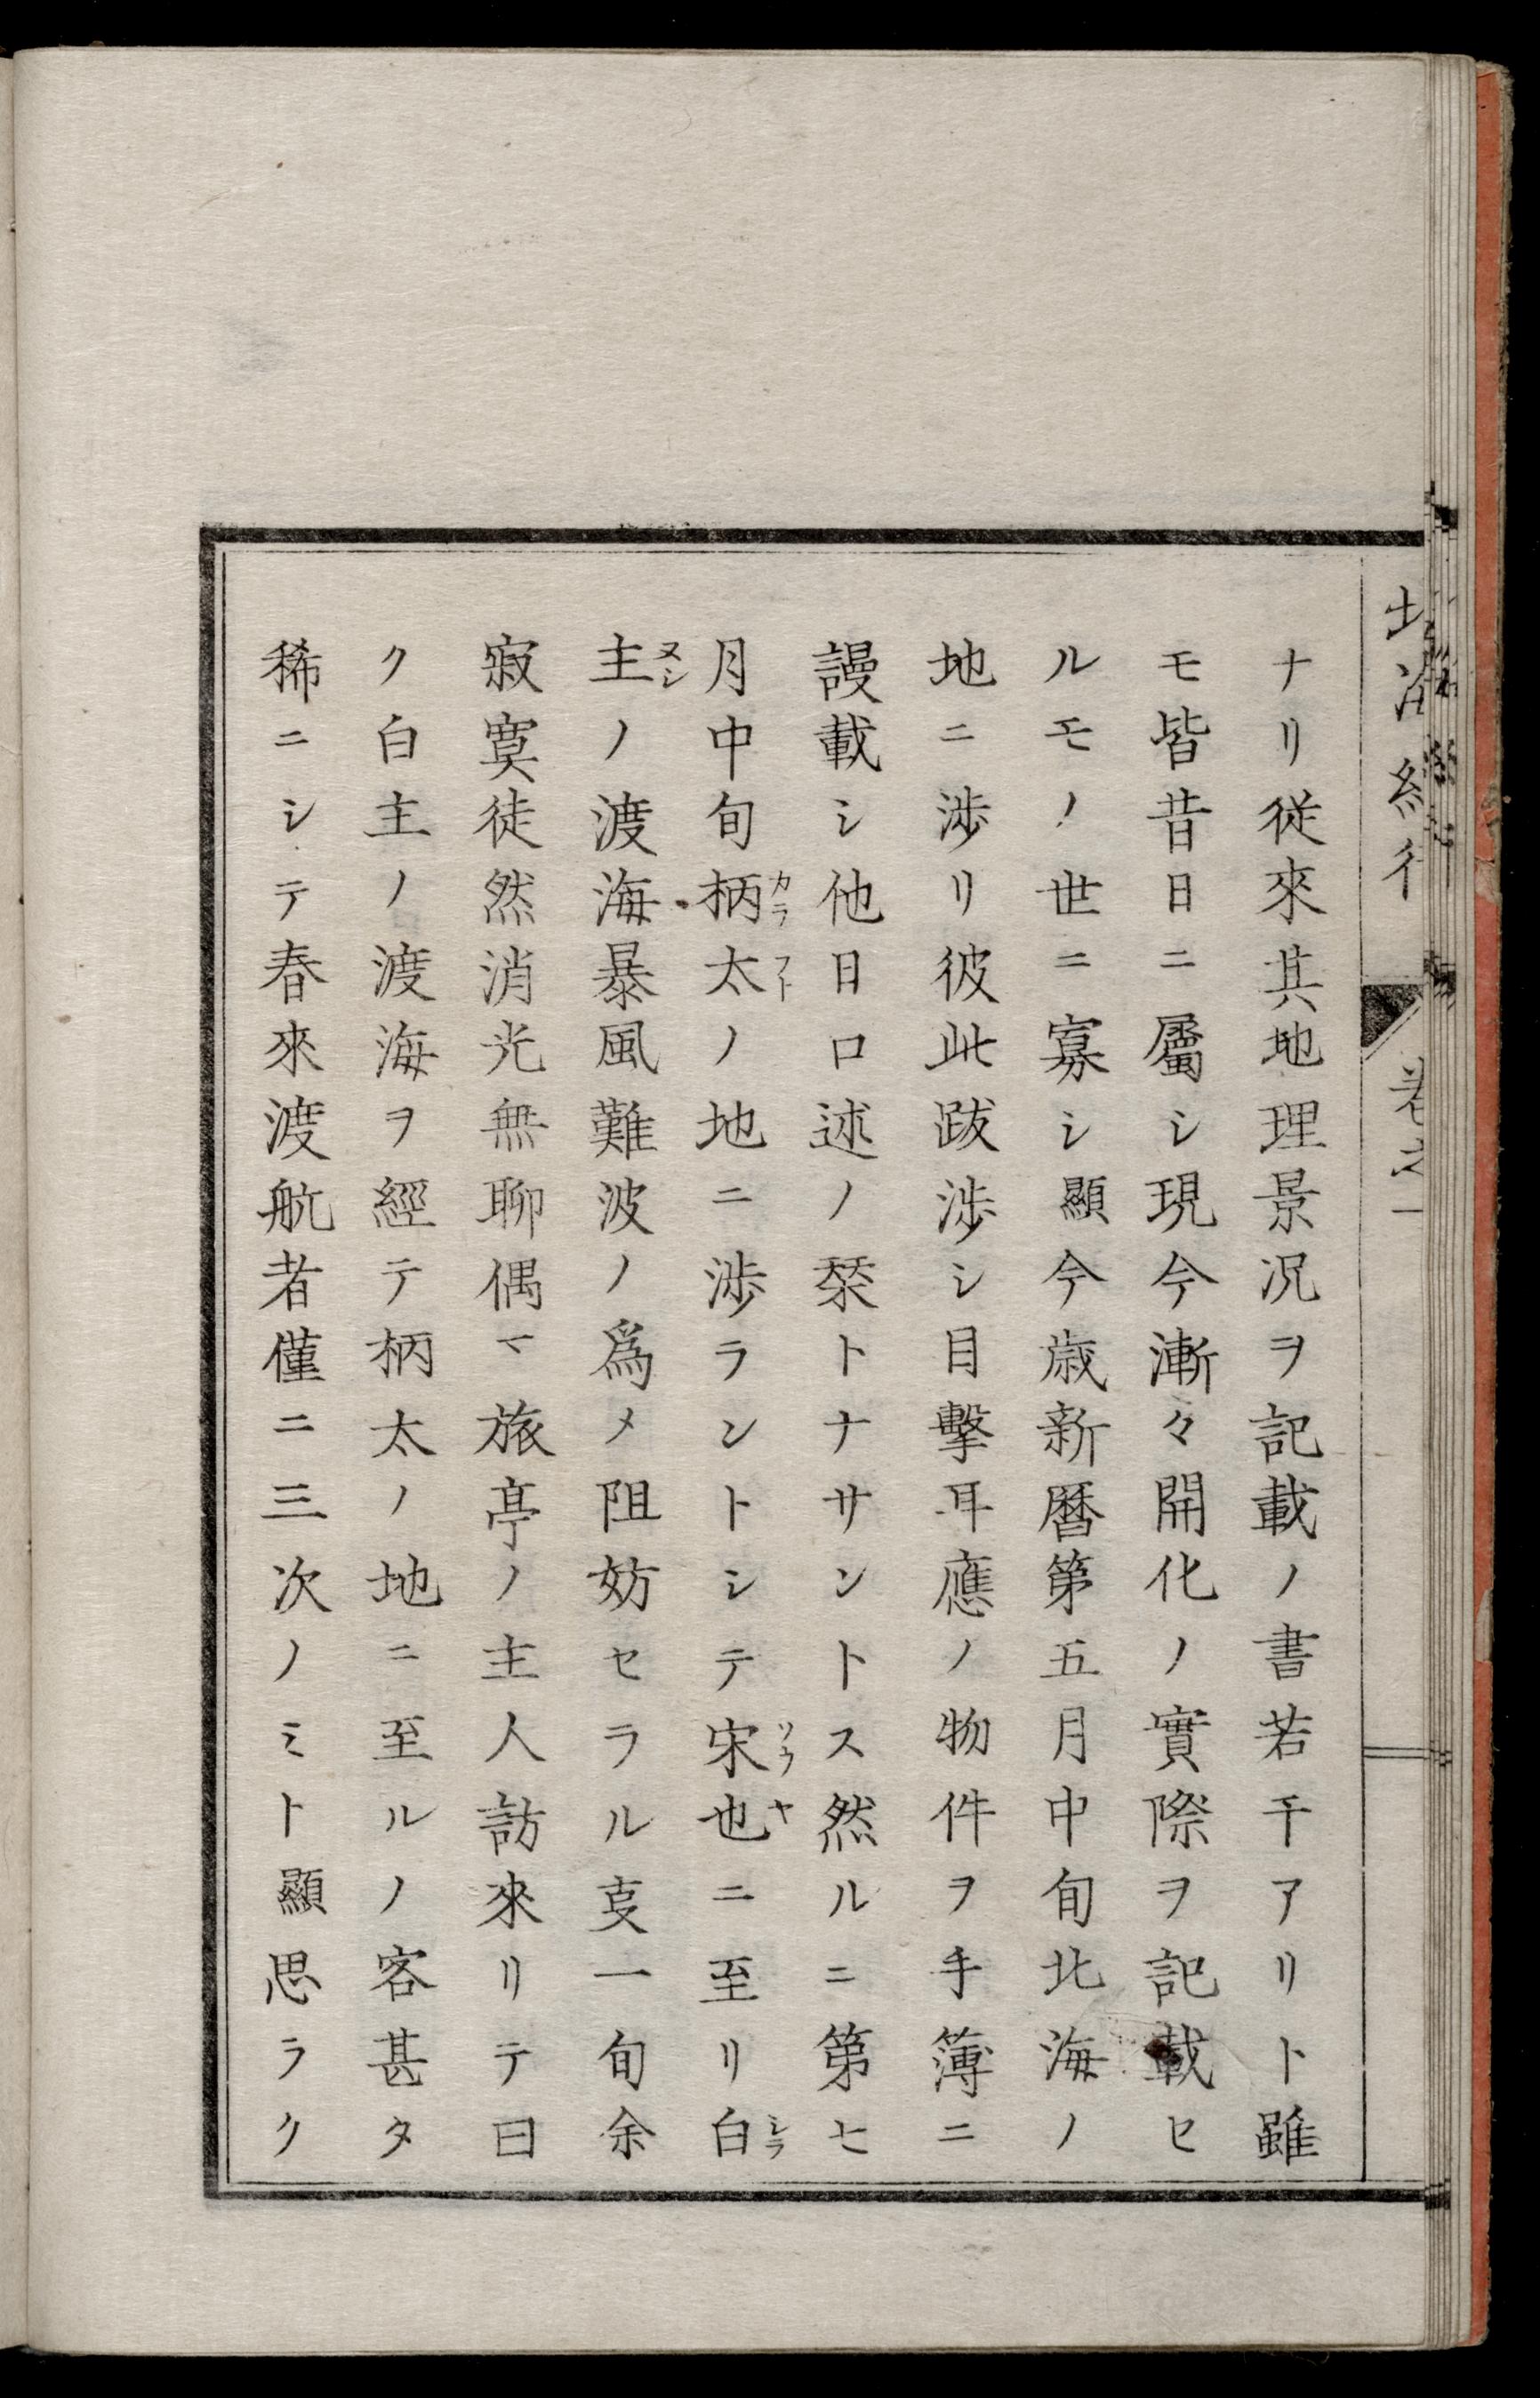 ナリ從來其地理景况ヲ記載ノ書若干アリト雖
モ皆昔日ニ屬シ現今漸々開化ノ實際ヲ記載セ
ルモノ世ニ寡シ顯今歳新暦第五月中旬北海ノ
地ニ渉リ彼此跋渉シ目擊耳應ノ物件ヲ手簿ニ
謾載シ他日口述ノ栞トナサントス然ルニ第七
月中旬柄太ノ地ニ渉ラントシテ宋也ニ至リ白
カラ
フト
ソウヤ
シラ
主ノ渡海暴風難波ノ爲メ阻妨セラル叓一旬余
ヌシ
寂寞徒然消光無聊偶マ旅亭ノ主人訪來リテ曰
ク白主ノ渡海ヲ經テ柄太ノ地ニ至ルノ客甚タ
稀ニシテ春來渡航者僅ニ三次ノミト顯思ラク
卷之一